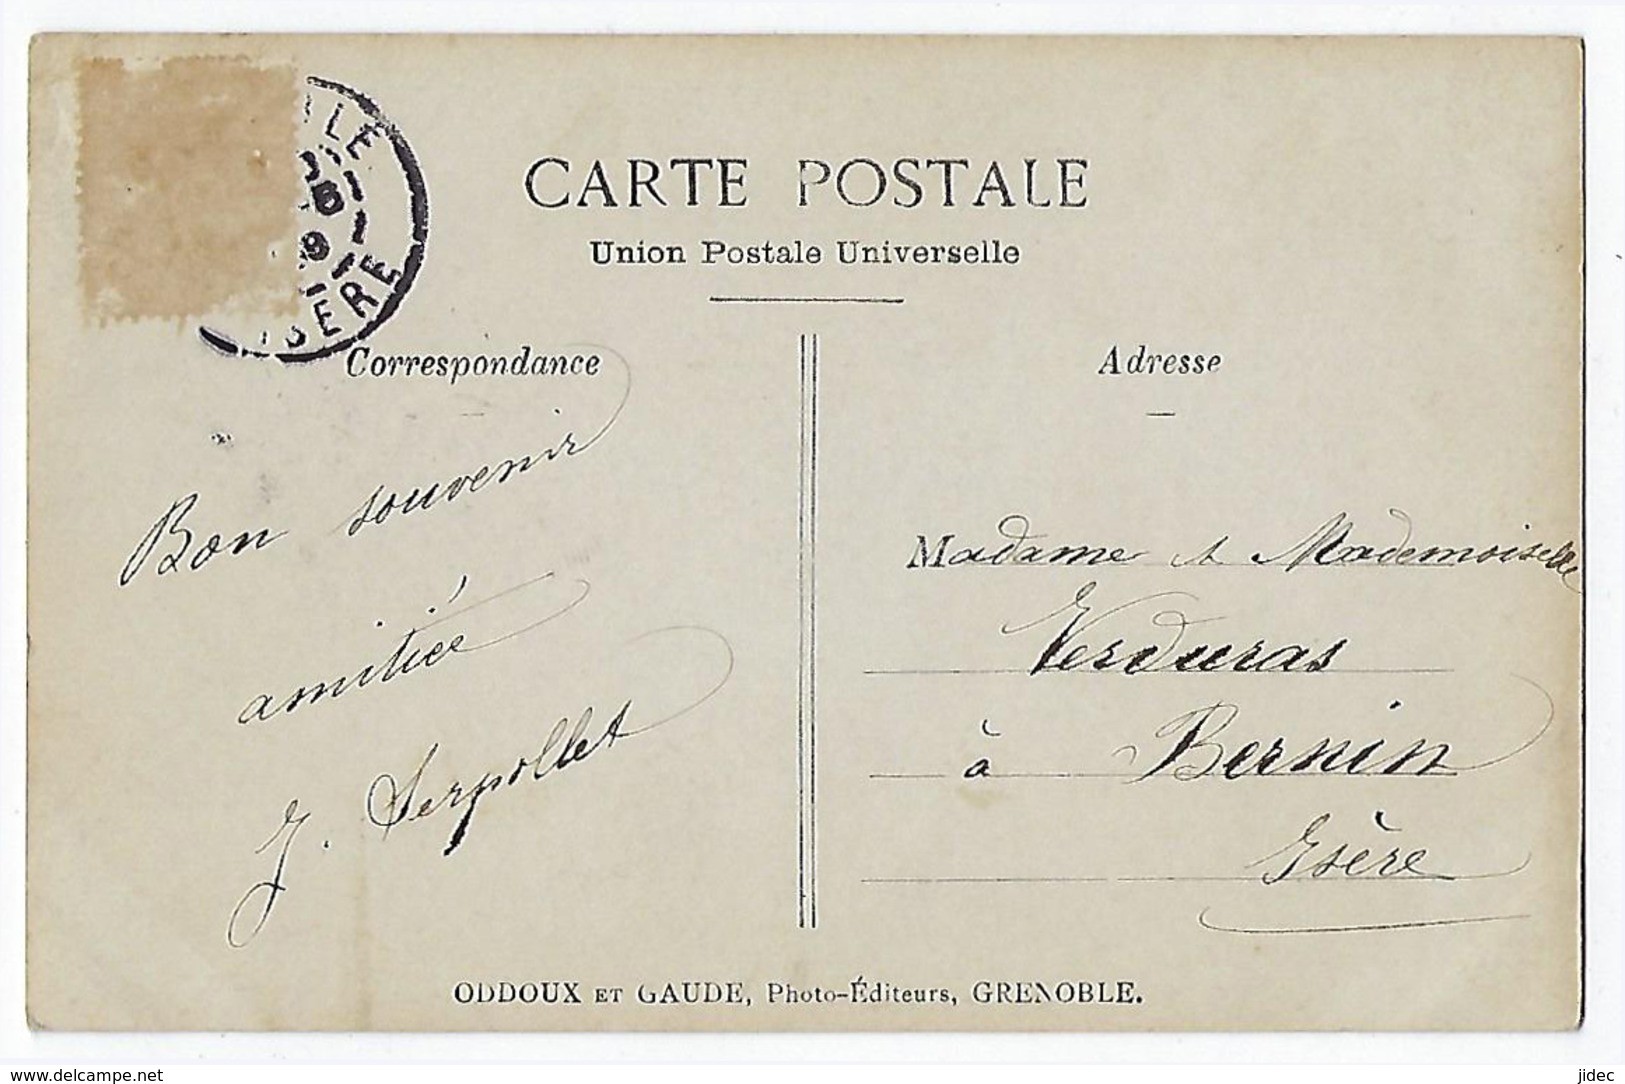 CARTE POSTALE
Union Postale Universelle
Correspondance
Adresse
ISERE
Bon souvenir
amitiée
J. Serpollet
Madame et Mademoiselle
Verduras
à Bernin
Isère
ODDOUX ET GAUDE, Photo-Éditeurs, GRENOBLE.
www.delcampe.net
jidec